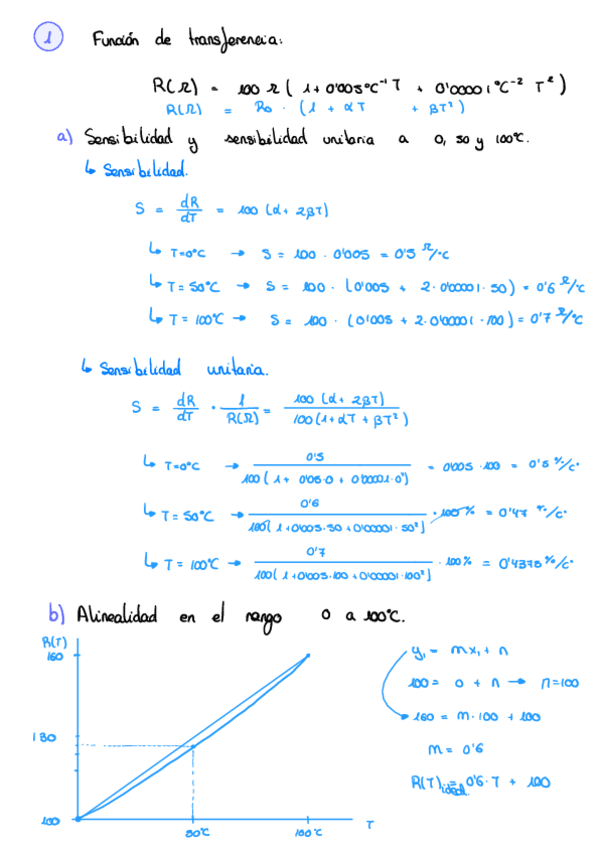 1 Función de transferencia:
R(Ω) = 100 Ω (1 + 0'005°C⁻¹ T + 0'00001°C⁻² T²)
R(Ω) = R₀ · (1 + αT + βT²)
a) Sensibilidad y sensibilidad unitaria a 0, 50 y 100°C.
↳ Sensibilidad.
S = dR/dT = 100 (α + 2βT)
↳ T=0°C → S = 100 · 0'005 = 0'5 Ω/°C
↳ T = 50°C → S = 100 · (0'005 + 2·0'00001·50) = 0'6 Ω/°C
↳ T = 100°C → S = 100 · (0'005 + 2·0'00001·100) = 0'7 Ω/°C
↳ Sensibilidad unitaria.
S = dR/dT · 1/R(Ω) = 100 (α + 2βT) / 100 (1 + αT + βT²)
↳ T=0°C → 0'5 / 100(1 + 0'05·0 + 0'00001·0²) = 0'005 · 100 = 0'5 %/c°
↳ T = 50°C → 0'6 / 100[1 + 0'005·50 + 0'00001·50²] · 100% = 0'47 %/c°
↳ T = 100°C → 0'7 / 100[1 + 0'005·100 + 0'00001·100²] · 100% = 0'4375 %/c°
b) Alinealidad en el rango 0 a 100°C.
R(T)
160
130
100
50°C
100°C
T
y₁ = mx₁ + n
100 = 0 + n → n=100
160 = m·100 + 100
m = 0'6
R(T)ideal = 0'6·T + 100